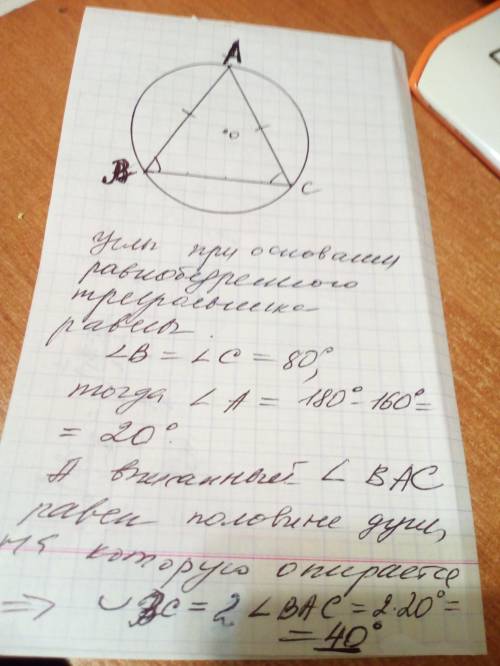 A
O
B
C
Углы при основании
равнобедренного
треугольника
равны.
∠B = ∠C = 80°,
тогда ∠A = 180° - 160° =
= 20°.
А вписанный ∠ BAC
равен половине дуги,
на которую опирается
=> ◡ BC = 2 ∠BAC = 2·20° =
= 40°